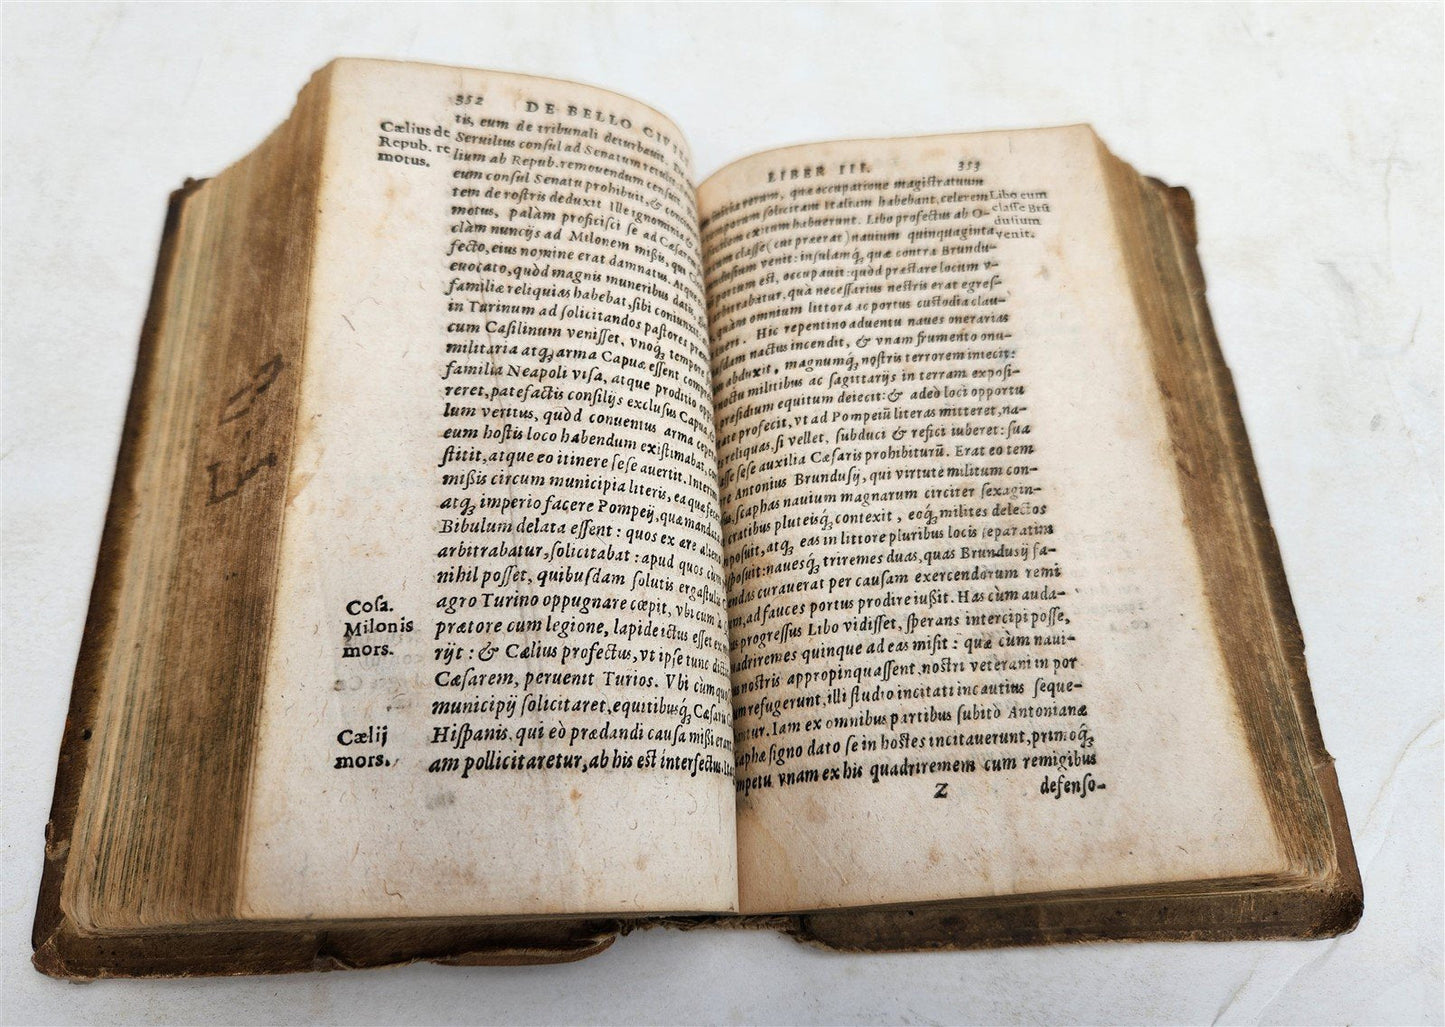 352 DE BELLO CIVILI
Cælius de
Repub. re
motus.
tis, eum de tribunali deturbauit. De
Seruilius conſul ad Senatum
lium ab Repub. remouendum cenſuit.
eum conſul Senatu prohibuit, &
tem de roſtris deduxit Ille ignominia &
motus, palàm proficiſci ſe ad Cæſarem
clàm nuncijs ad Milonem miſsis, qui
fecto, eius nomine erat damnatus. Atque
euocato, quòd magnis muneribus datis,
familiæ reliquias habebat, ſibi coniunxit,
in Turinum ad ſolicitandos paſtores
cum Caſilinum veniſſet, vnoq́; tempore
militaria atq́; arma Capuæ eſſent
familia Neapoli viſa, atque proditio
reret, patefactis conſilijs excluſus Capua,
lum veritus, quòd conuentus arma
eum hoſtis loco habendum exiſtimabat,
ſtitit, atque eo itinere ſeſe auertit. Interim
miſsis circum municipia literis, ea quæ
atq́; imperio facere Pompeij, quæ mandata
Bibulum delata eſſent : quos ex ære alieno
arbitrabatur, ſolicitabat : apud quos cùm
nihil poſſet, quibuſdam ſolutis ergaſtulis
agro Turino oppugnare cœpit, vbi cum a
Coſa.
Milonis
mors.
prætore cum legione, lapide ictus eſſet ex
rijt : & Cælius profectus, vt ipſe tunc
Cæſarem, peruenit Turios. Vbi cùm
municipij ſolicitaret, equitibuſq́; Cæſaris
Cælij
mors.
Hiſpanis, qui eò prædandi cauſa miſsi erant
am pollicitaretur, ab his eſt interfectus.
LIBER III. 353
rerum, quæ occupatione magiſtratuum
temporum ſolicitam Italiam habebant, celerem
exitum habuerunt. Libo profectus ab O-
Libo cum
claſſe Brū
duſium
venit.
claſſe (cui præerat) nauium quinquaginta
venit : inſulamq́;, quæ contra Brundu-
portum eſt, occupauit : quòd præſtare locum v-
arbitrabatur, quà neceſſarius noſtris erat egreſ-
quàm omnium littora ac portus cuſtodia clau-
Hic repentino aduentu naues onerarias
nactus incendit, & vnam frumento onu-
abduxit, magnumq́; noſtris terrorem iniecit :
noctu militibus ac ſagittarijs in terram expoſi-
præſidium equitum deiecit : & adeò loci opportu
profecit, vt ad Pompeiū literas mitteret, na-
reliquas, ſi vellet, ſubduci & refici iuberet : ſua
ſeſe auxilia Cæſaris prohibiturū. Erat eo tem
Antonius Brunduſij, qui virtute militum con-
ſcaphas nauium magnarum circiter ſexagin-
cratibus pluteiſq́; contexit, eoq́; milites delectos
poſuit, atq́; eas in littore pluribus locis ſeparatim
diſpoſuit : naueſq́; triremes duas, quas Brunduſij fa-
curauerat per cauſam exercendorum remi
ad fauces portus prodire iuſsit. Has cùm auda-
progreſſus Libo vidiſſet, ſperans intercipi poſſe,
quadriremes quinque ad eas miſit : quæ cùm naui-
noſtris appropinquaſſent, noſtri veterani in por
refugerunt, illi ſtudio incitati incautius ſeque-
Iam ex omnibus partibus ſubitò Antonianæ
ſcaphæ ſigno dato ſe in hoſtes incitauerunt, primoq́;
impetu vnam ex his quadriremem cum remigibus
Z defenſo-